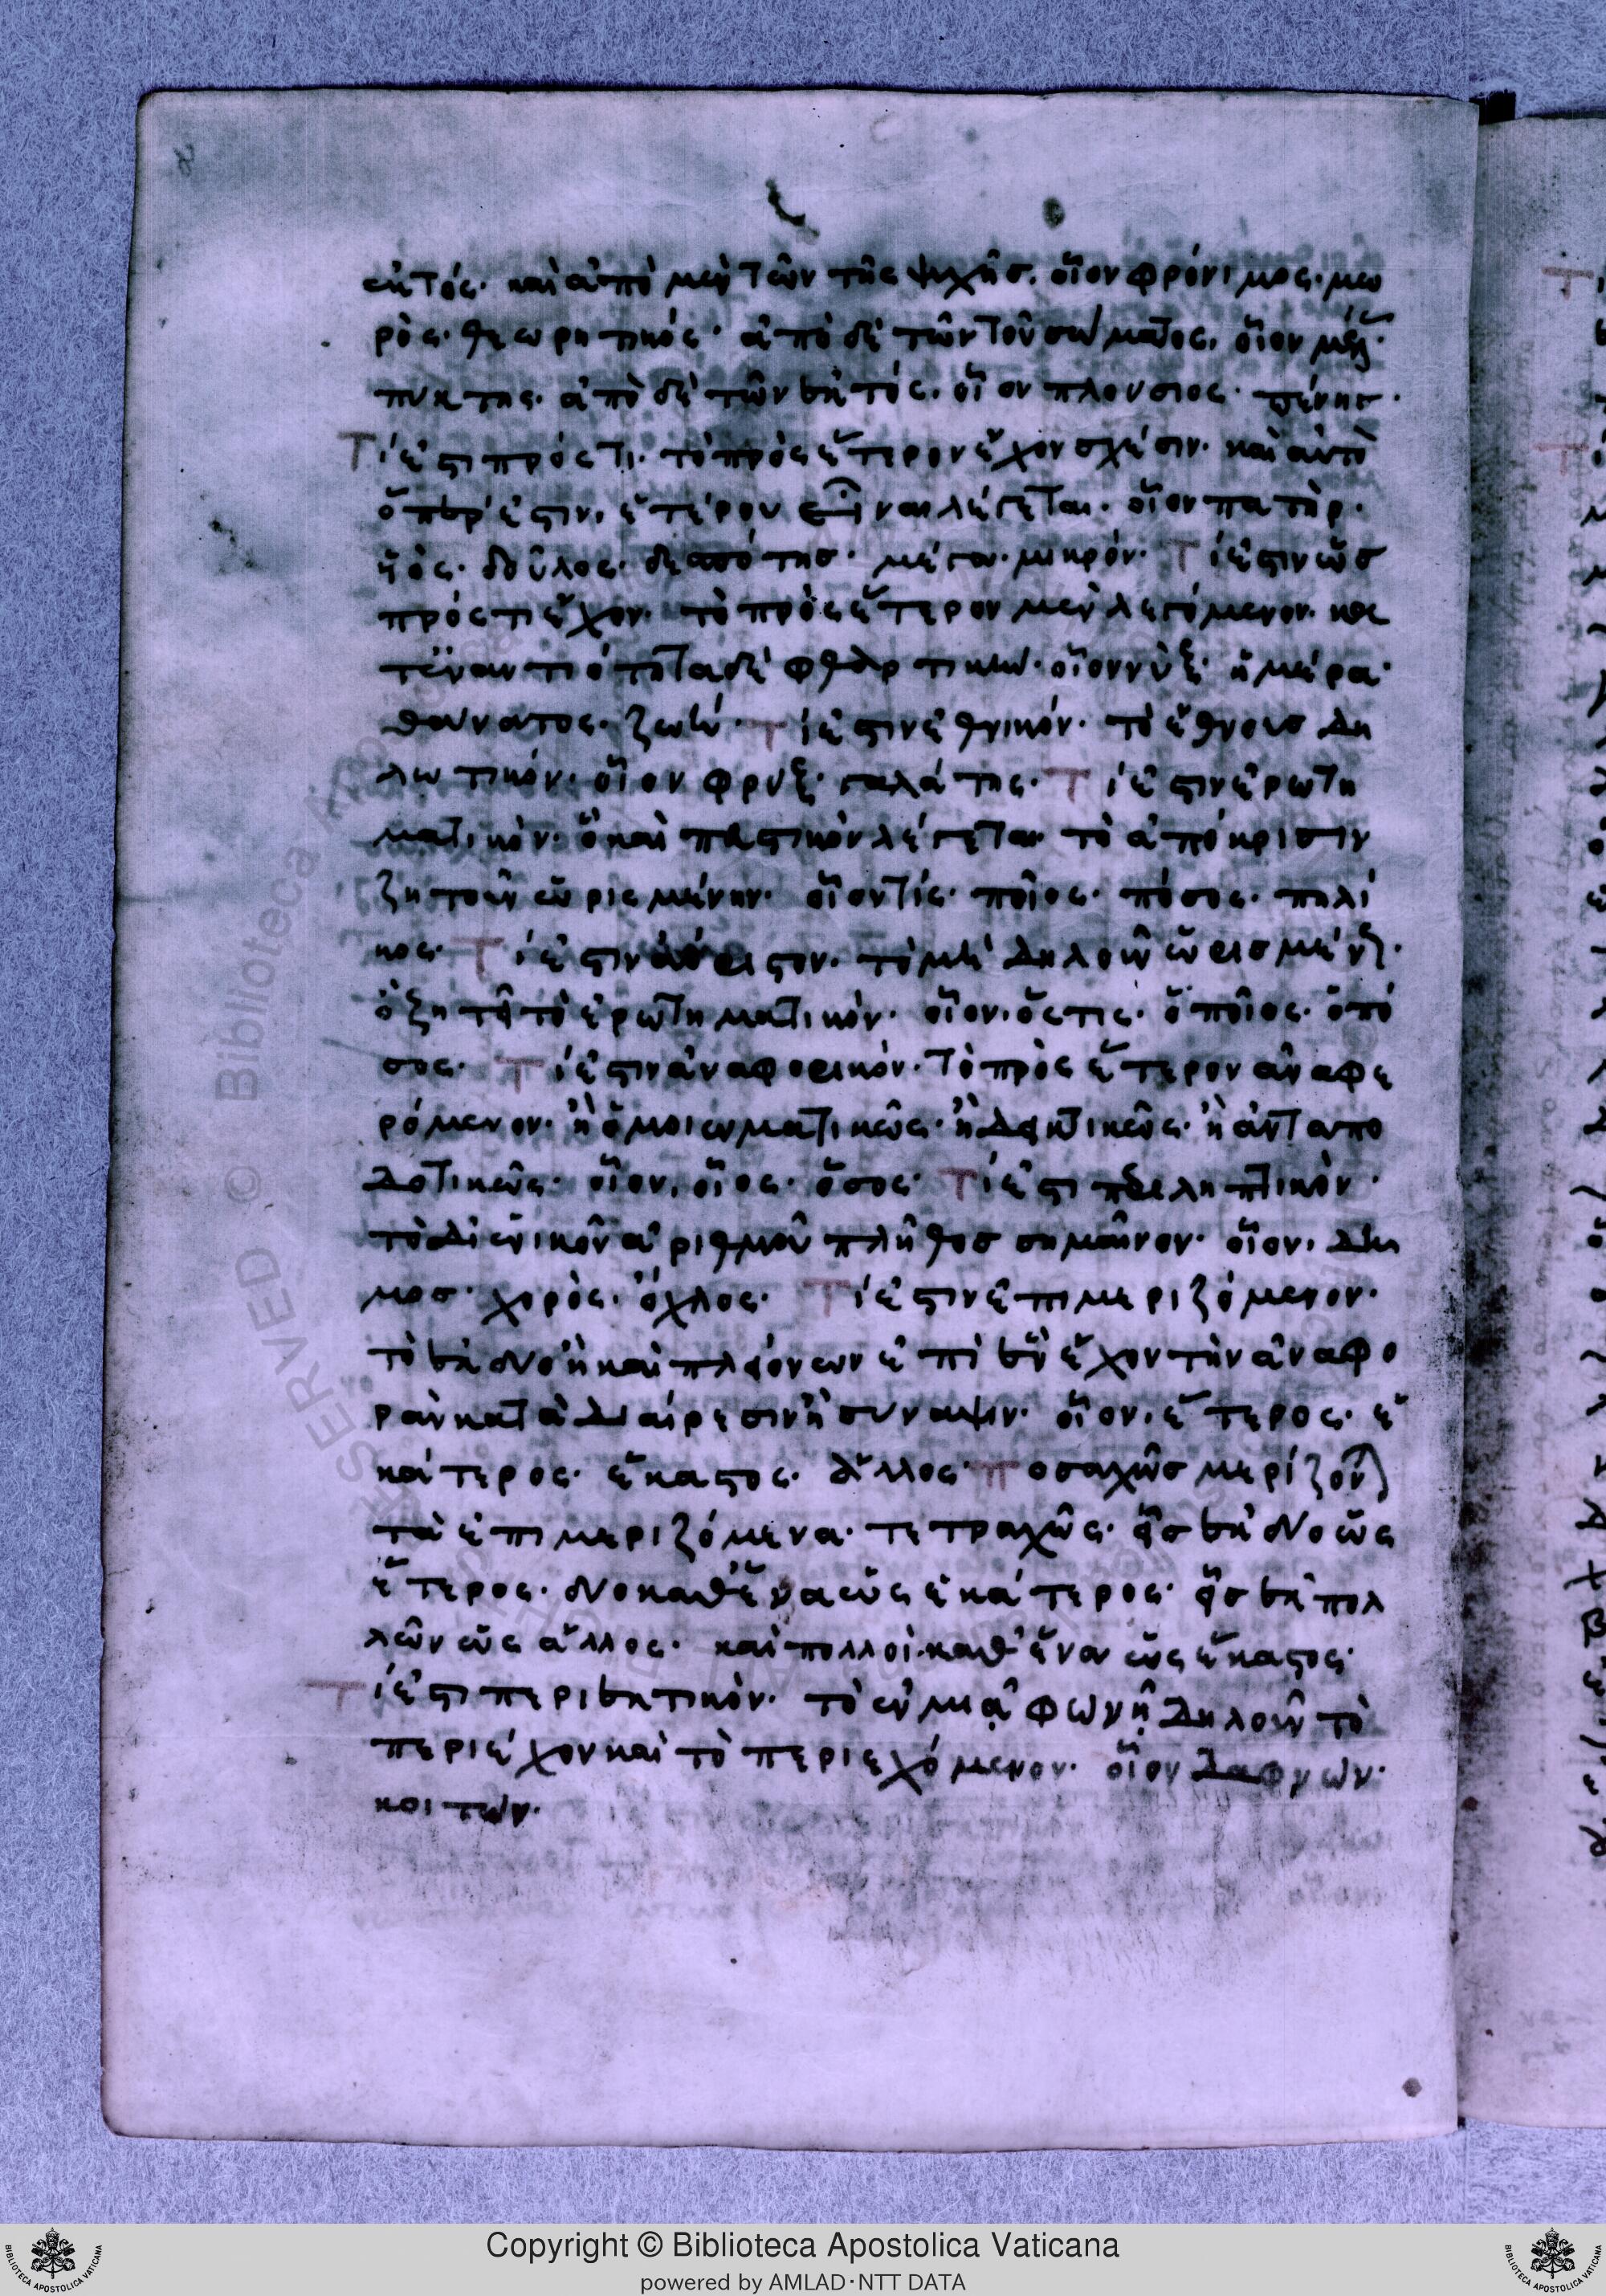 εκτός· καὶ ἀπὸ μὲν τῶν τῆς ψυχῆσ. οἷον φρόνιμος· μω
ρὸς· θεωρητικός· ἀπὸ δὲ τῶν τοῦ σώματος. οἷον
πύκτης. ἀπὸ δὲ τῶν ἐκτός. οἷον πλούσιος· πένησ·
Τί ἐστι πρός τι. τὸ πρὸς ἕτερον ἔχον σχέσιν. καὶ αὐτὸ
ὅπερ ἐστιν, ἑτέρου εἶναι λέγεται. οἷον πατὴρ.
ϋἱός· δοῦλος· δεσπότησ· μέγα· μικρόν· Τί ἐστιν ὡσ
πρός τι ἔχον. τὸ πρὸς ἕτερον μὲν λεγόμενον. κα
τεναντιότητα δὲ φθαρτικὴν· οἷον νὺξ· ἡμέρα·
θάνατος. ζωή· Τί ἐστιν ἐθνικόν. τὸ ἔθνουσ δη
λωτικόν. οἷον φρυξ· γαλάτης. Τί ἐστιν ἐρωτη
ματικὸν. ὃ καὶ πευστικὸν λέγεται τὸ ἀπόκρισιν
ζητοῦν ὡρισμένην. οἷον τίς· ποῖος· πόσος· πηλί
κος· Τί ἐστιν ἀόριστον. τὸ μὴ δηλοῦν ὡρισμένον.
ὃ ζητεῖ τὸ ἐρωτηματικὸν. οἷον. ὅστις· ὁποῖος. ὁπό
σος. Τί ἐστιν ἀναφορικόν. Τὸ πρὸς ἕτερον ἀναφε
ρόμενον. ἢ ὁμοιωματικῶς. ἢ δεικτικῶς. ἢ ἀνταπο
δοτικῶς. οἷον. οἷος. ὅσος· Τί ἐστι περιληπτικὸν.
τὸ δι ἑνικοῦ ἀριθμοῦ πλῆθοσ σημαῖνον. οἷον. δῆ
μοσ· χορὸς. ὄχλος. Τί ἐστιν ἐπιμεριζόμενον.
τὸ ἐκ δύο ἢ καὶ πλειόνων ἐπὶ ἓν ἔχον τὴν ἀναφο
ρὰν κατὰ διαίρεσιν ἢ σύναψιν. οἷον. ἕτερος. ἑ
κάτερος. ἕκαστος. ἄλλος· ποσαχῶσ μερίζονται
τὰ ἐπιμεριζόμενα. τετραχῶς. εἷσ ἐκ δύο ὡς
ἕτερος. δύο καθ ἕνα ὡς ἑκάτερος. εἷσ ἐκ πολ
λῶν ὡς ἄλλος. καὶ πολλοὶ καθ ἕνα ὡς ἕκαστος.
Τί ἐστι περιεκτικὸν. τὸ ἐν μιᾷ φωνῇ δηλοῦν τὸ
περιέχον καὶ τὸ περιεχόμενον. οἷον δαφνών.
κοιτών.
Copyright © Biblioteca Apostolica Vaticana
powered by AMLAD·NTT DATA